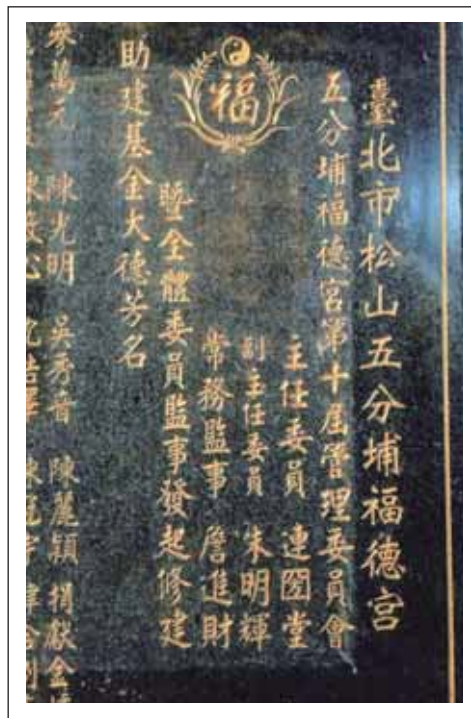 臺北市松山五分埔福德宮
五分埔福德宮第十屆管理委員會
主任委員 連圀堂
副主任委員 朱明輝
常務監事 詹進財
暨全體委員監事發起修建
福
助建基金大德芳名
參萬元 陳光明 吳秀音 陳麗穎 捐獻金